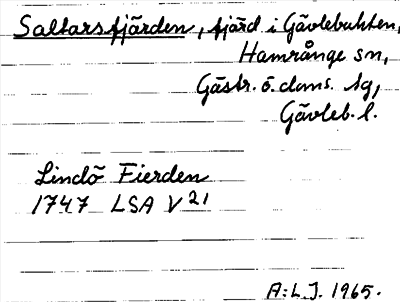 Saltarsfjärden, fjärd i Gävlebukten,
Hamrånge sn,
Gästr. ö. doms. tg,
Gävleb. l.
Lindö Fierden
1747 LSA V 21
A:L J. 1965.